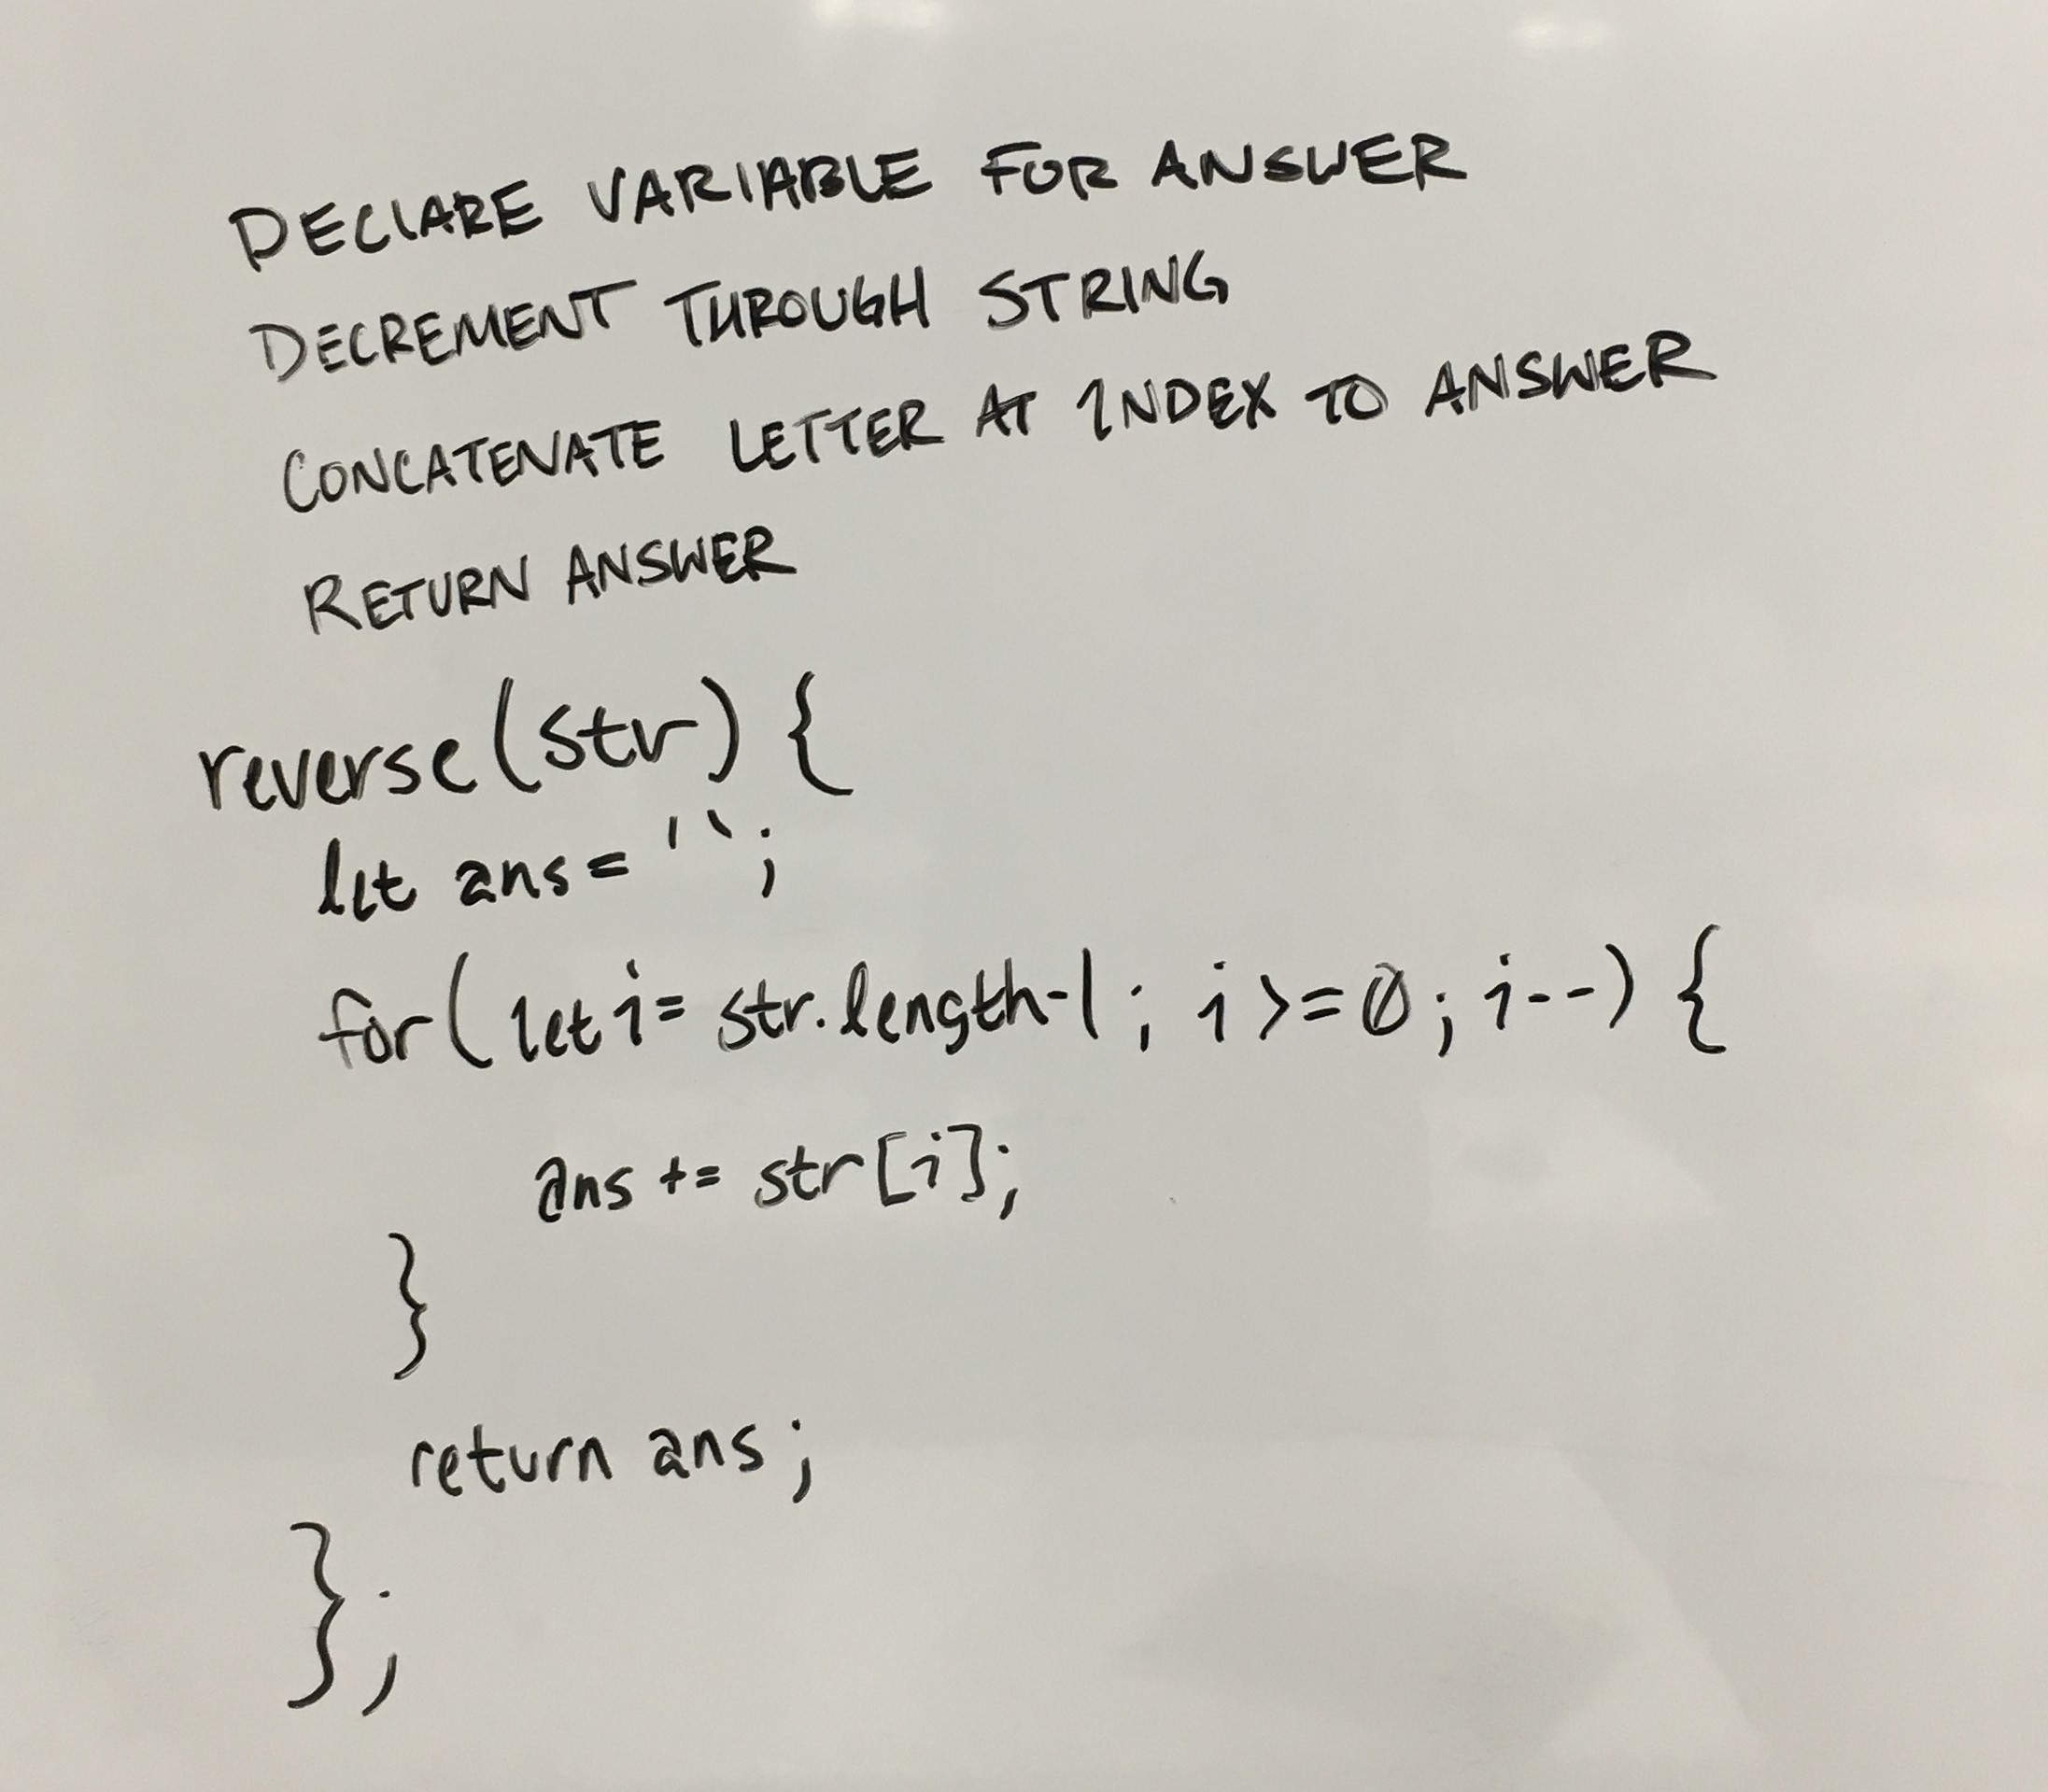 DECLARE VARIABLE FOR ANSWER
DECREMENT THROUGH STRING
CONCATENATE LETTER AT INDEX TO ANSWER
RETURN ANSWER
reverse(str) {
let ans = '';
for( let i= str.length-1; i >= 0; i--) {
ans += str[i];
}
return ans;
};